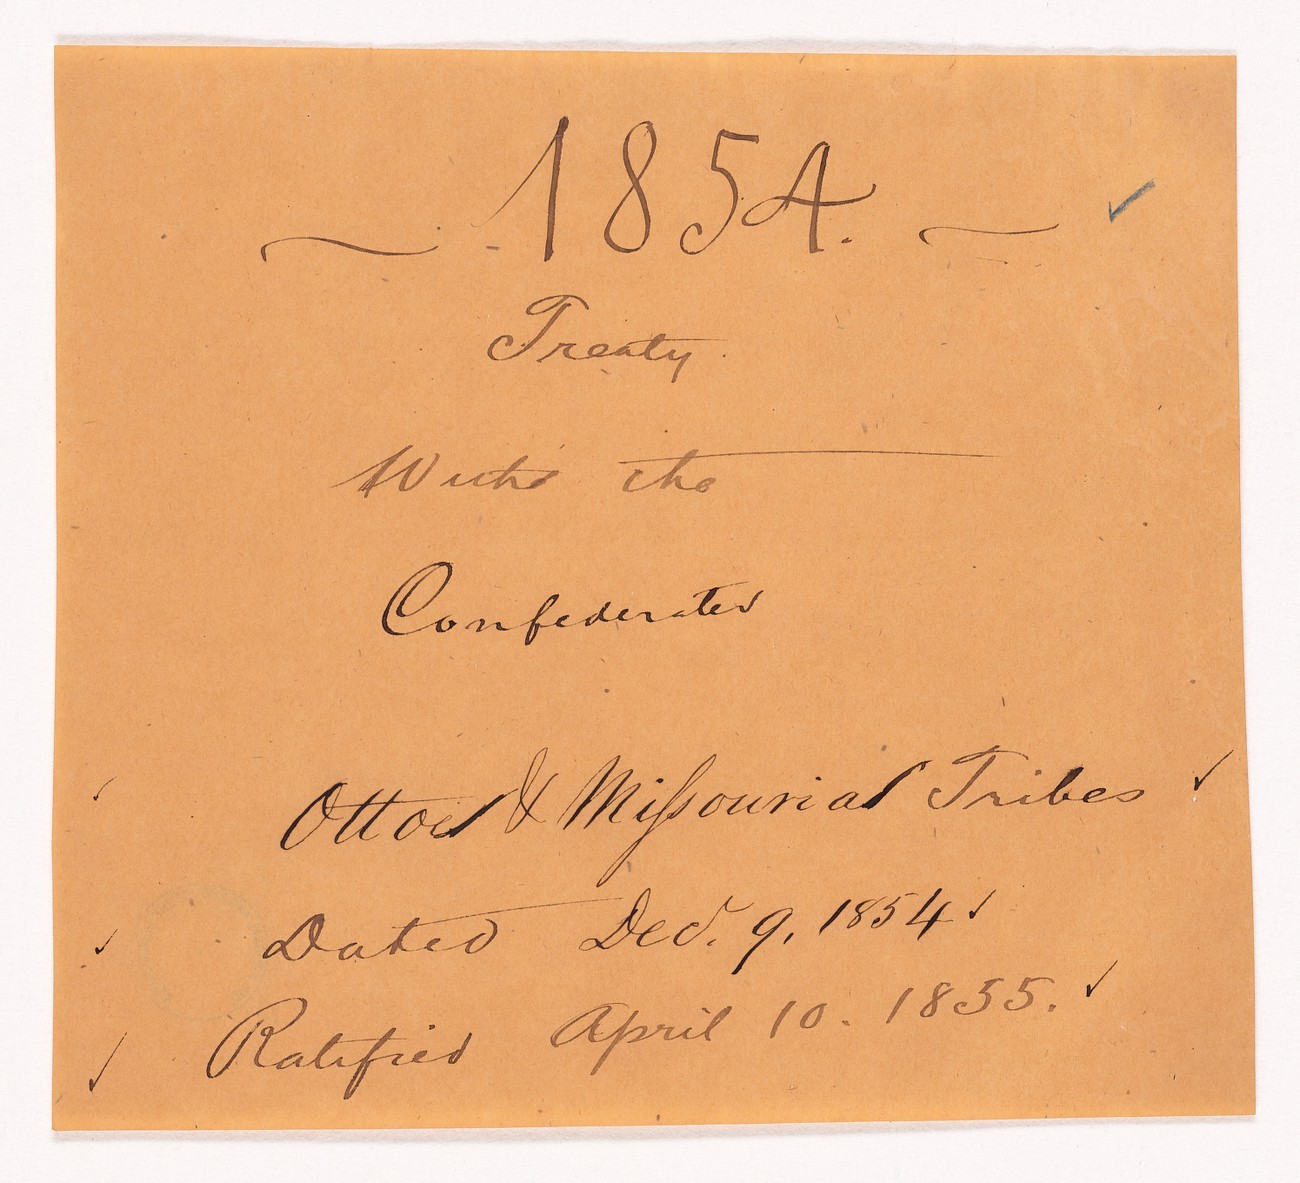 1854.
Treaty
With the
Confederated
Ottoes & Missourias Tribes
Dated Dec. 9, 1854
Ratified April 10. 1855.